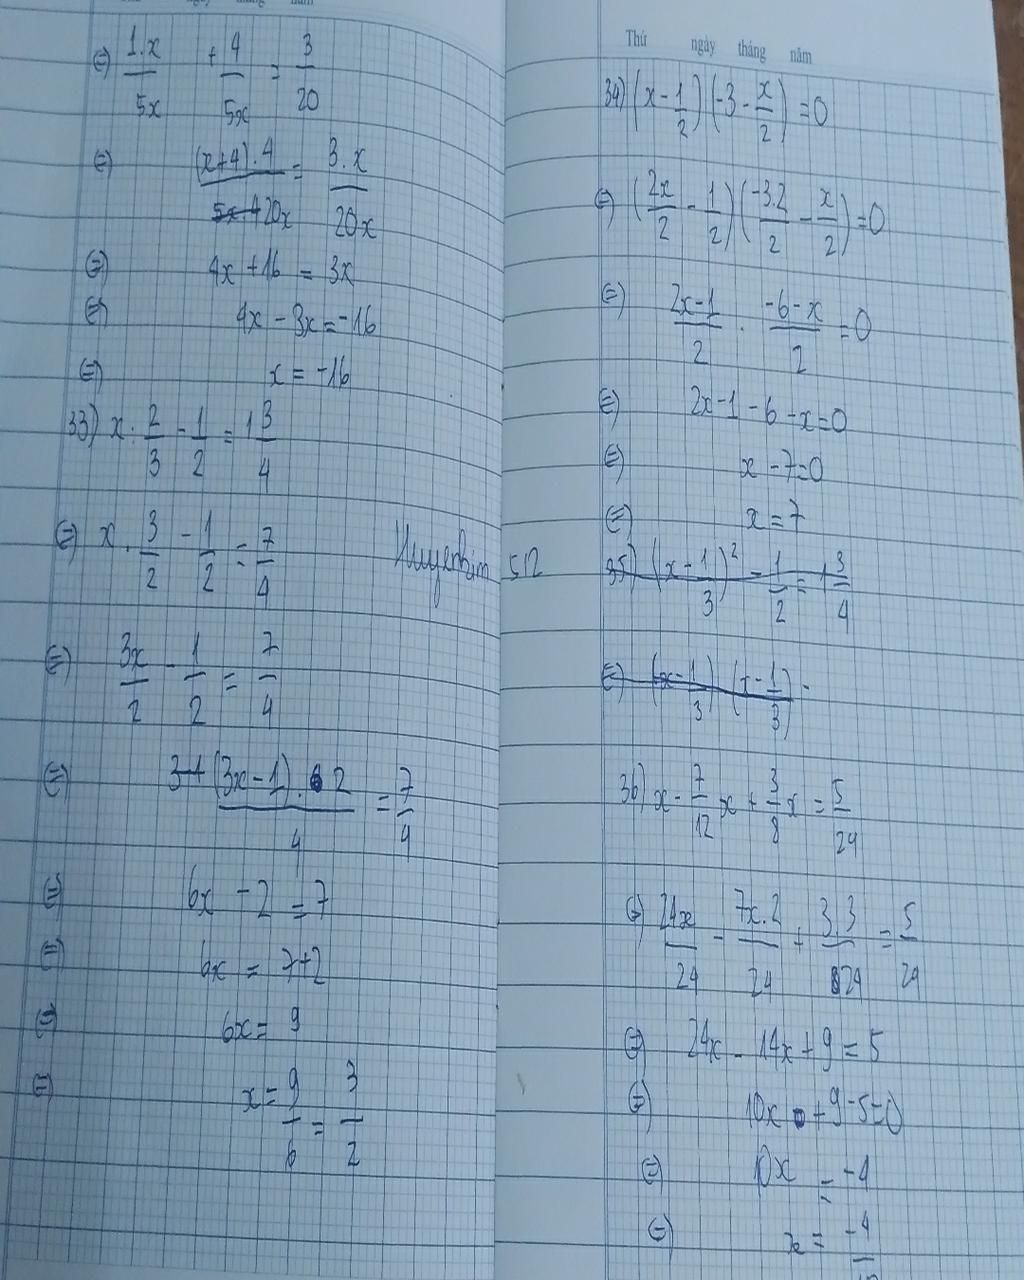 ngày tháng năm
⇔ 1.x/5x + 4/5x = 3/20
⇔ (x+4).4/20x = 3.x/20x
⇔ 4x + 16 = 3x
⇔ 4x - 3x = -16
⇔ x = -16
33) x . 2/3 - 1/2 = 1 3/4
⇔ x . 3/2 - 1/2 = 7/4
⇔ 3x/2 - 1/2 = 7/4
⇔ (3x-1).2/4 = 7/4
⇔ 6x - 2 = 7
⇔ 6x = 7+2
⇔ 6x = 9
⇔ x = 9/6 = 3/2
Thứ ngày tháng năm
34) (x - 1/2)(-3 - x/2) = 0
⇔ (2x/2 - 1/2)(-3.2/2 - x/2) = 0
⇔ 2x-1/2 . -6-x/2 = 0
⇔ 2x-1-6-x=0
⇔ x-7=0
⇔ x=7
35) (x - 1/3)² - 1/2 = 1 3/4
⇔ (x - 1/3)(x - 1/3) .
36) x - 7/12 x + 3/8 x = 5/24
⇔ 24x/24 - 7x.2/24 + 3.3/24 = 5/24
⇔ 24x - 14x + 9 = 5
⇔ 10x + 9-5=0
⇔ 10x = -4
⇔ x = -4